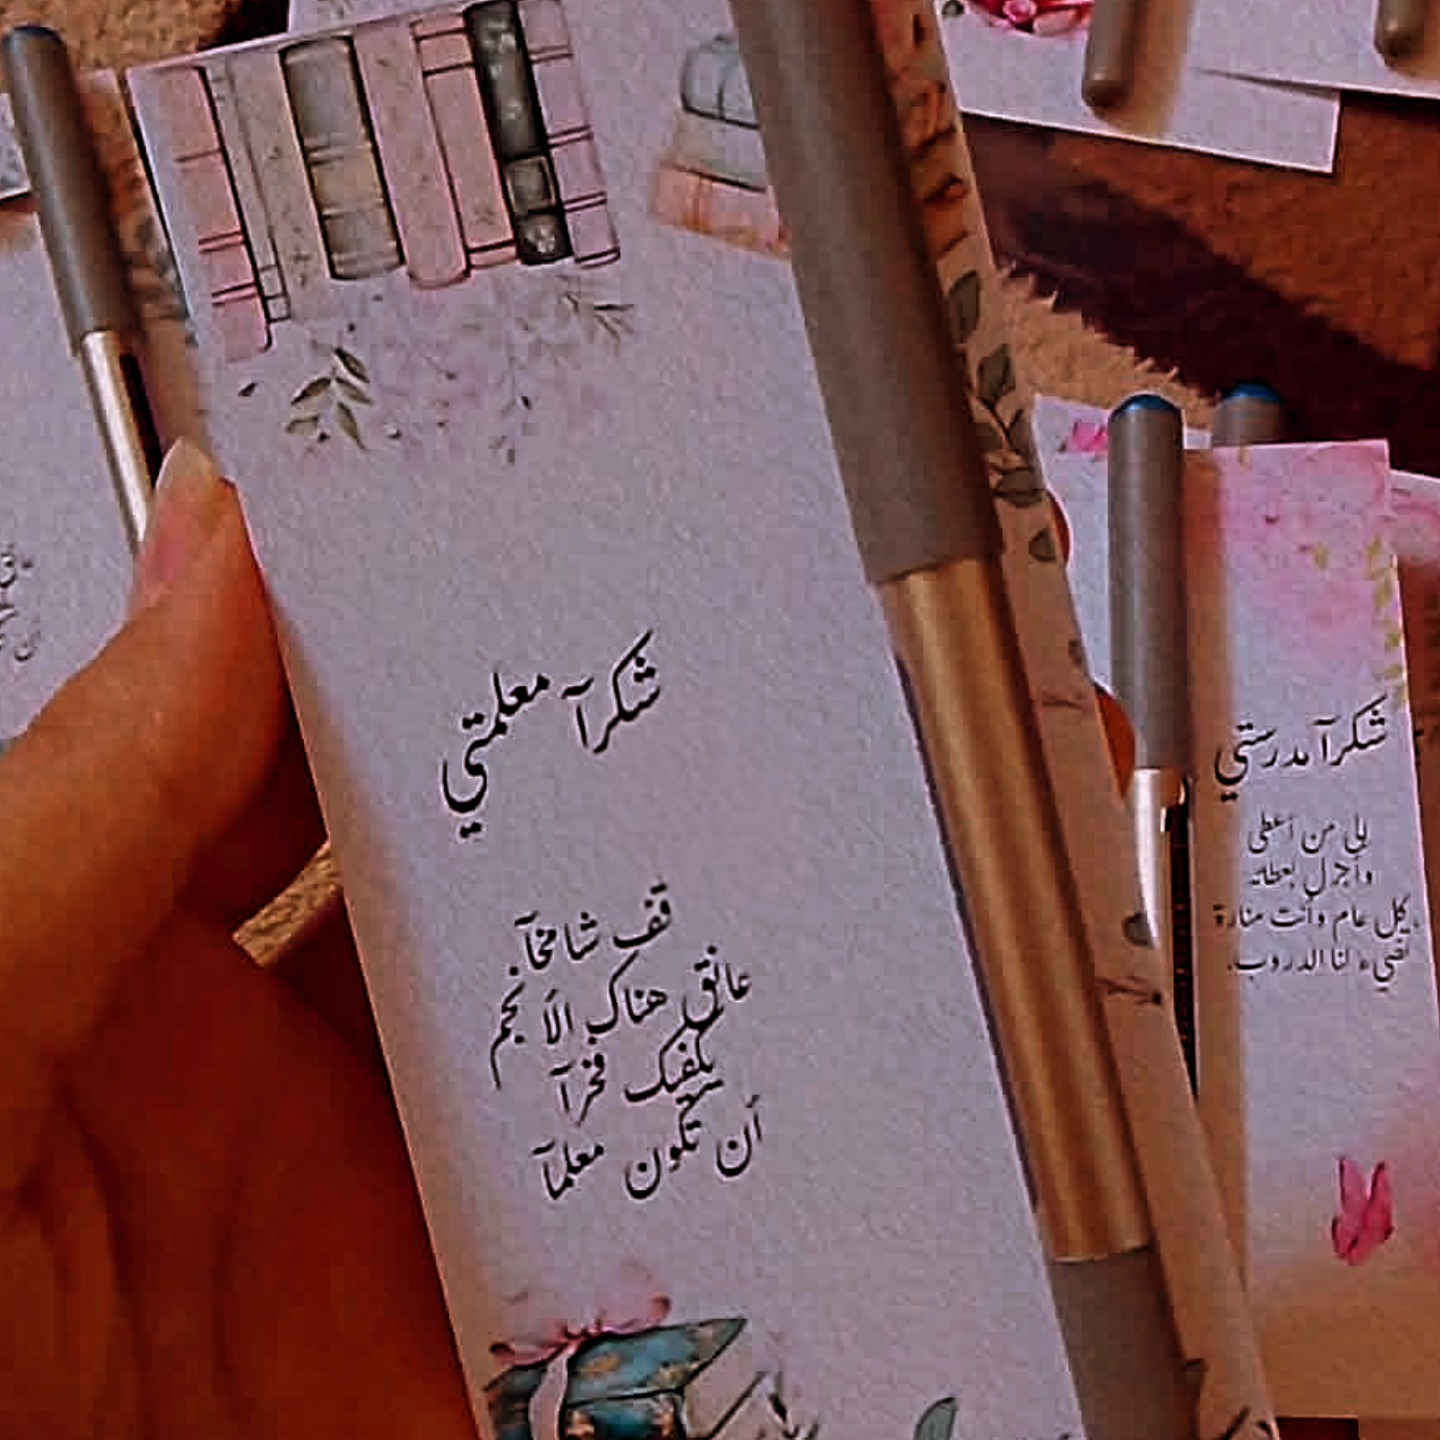 شكرآ معلمتي
قف شامخآ
عانق هناك الأنجم
يكفيك فخرآ
أن تكون معلمآ
شكرآ مدرستي
إلى من أعطى
وأجزل بعطائه
كل عام وأنت منارة
تضيء لنا الدروب.